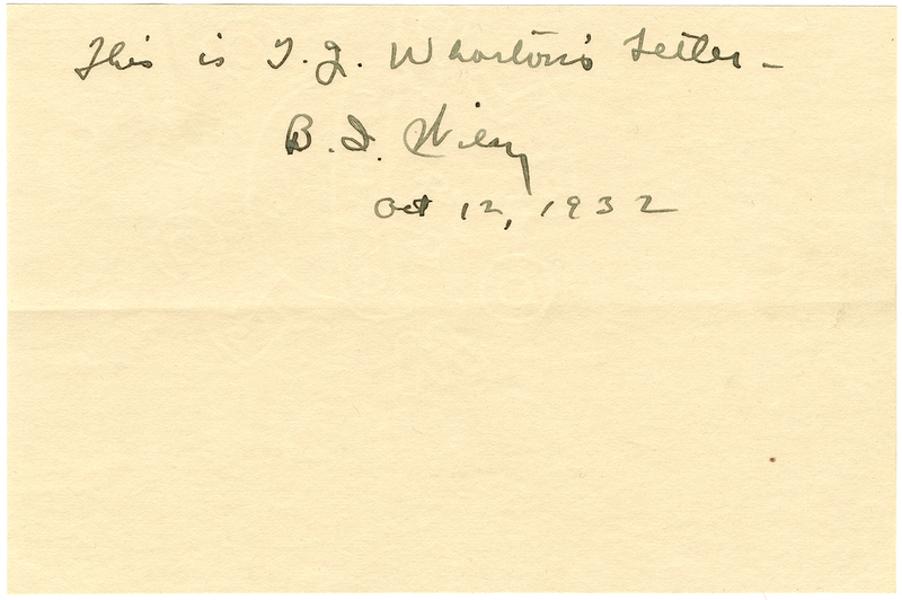 This is T. J. Wharton's letter –
B. I. Wiley
Oct 12, 1932